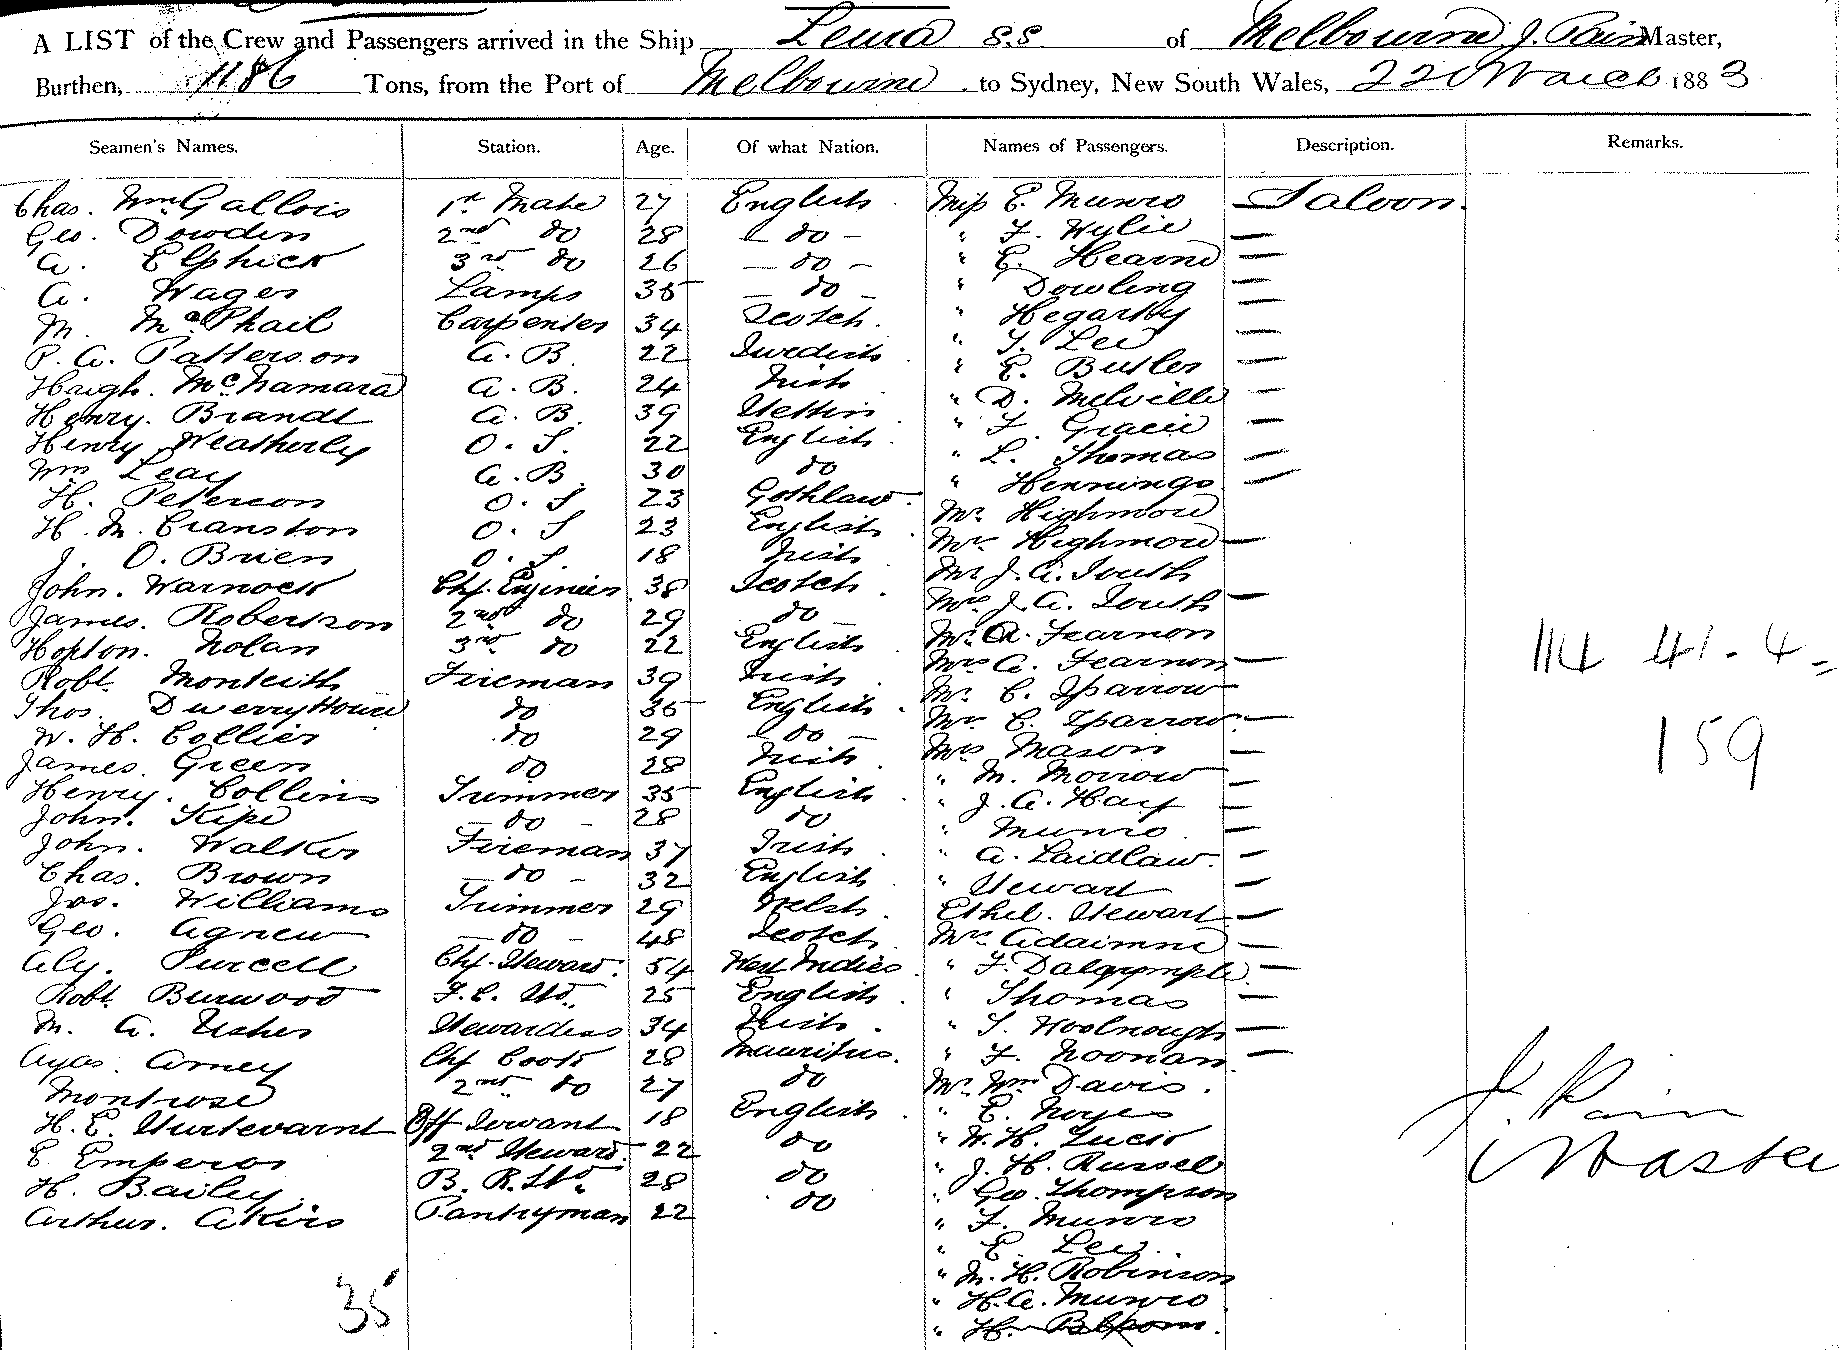 A LIST of the Crew and Passengers arrived in the Ship Leura S.S. of Melbourne J. Pain Master,
Burthen, 1186 Tons, from the Port of Melbourne to Sydney, New South Wales, 22d March 1883
Seamen's Names. Station. Age. Of what Nation. Names of Passengers. Description. Remarks.
Chas. Wm Gallois 1st Mate 27 English Miss E. Munro Saloon.
Geo. Dowden 2nd do 28 — do — " F. Wylie —
A. Elphick 3rd do 26 — do — " E. Hearne —
A. Wager Lamps 35 — do — " Dowling —
M. McPhail Carpenter 34 Scotch. " Hegarty —
P. A. Patterson A. B. 22 Swedish " T. Lee —
Haigh. McNamara A. B. 24 Irish " E. Butler —
Henry. Brandt A. B. 39 Stettin " D. Melville —
Henry Weatherly O. S. 22 English " F. Gracie —
Wm Leay A. B. 30 do " L. Thomas —
H. Peterson O. S 23 " Hennings —
H. M. Cranston O. S 23 English Mr. Highmore
J. O. Brien O. S. 18 Irish Mrs Highmore —
John. Warnock Chf. Enginier 38 Scotch Mr J. A. South
James. Robertson 2nd do 29 do Mrs J. A. South —
Hopton. Nolan 3rd do 22 English Mr. A. Fearnon
Robt. Monteith Fireman 39 Irish Mrs A. Fearnon —
Thos. Dwerryhouse do 35 English Mr. C. Sparrow
W. H. Collier do 29 — do — Mrs C. Sparrow —
James. Green do 28 Irish Mrs Mason —
Henry. Collins Trimmer 35 English " M. Morrow —
John. Kipe — do — 28 do " J. A. Hay —
John. Walker Fireman 37 Irish " Munro —
Chas. Brown — do — 32 English " A. Laidlaw. —
Jos. Williams Trimmer 29 Welsh " Stewart —
Geo. Agnew — do — 48 Scotch Ethel. Stewart —
Aly. Purcell Chf. Steward. 54 West Indies Mrs —
Robt. Burwood F. C. Std. 25 English " F. Dalrymple —
M. A. Usher Stewardess 34 Irish " Thomas —
Arney Chf Cook 28 Mauritius. " S. Woolnough —
Montrose 2nd do 27 do " F. Noonan —
H. E. Sturtevarnt Off Servant 18 English Mr. Wm Davis.
E Emperor 2nd Steward 22 do " E. Noyes
H. Bailey. B. R. Std. 28 do " W. H.
Arthur. Akirs Pantryman 22 do " J. H. Russel
" Geo. Thompson
" F. Munro
" E. Lee.
" M. H. Robinson
" H. A. Munro
" H.
35
114 41. 4
159
J. Pain
Master